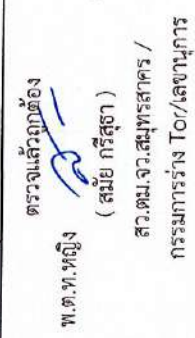 ตรวจแล้วถูกต้อง
พ.ต.ท.หญิง
( สมัย กรีสุธา )
สว.ตม.จว.สมุทรสาคร /
กรรมการร่าง Tor/เลขานุการ